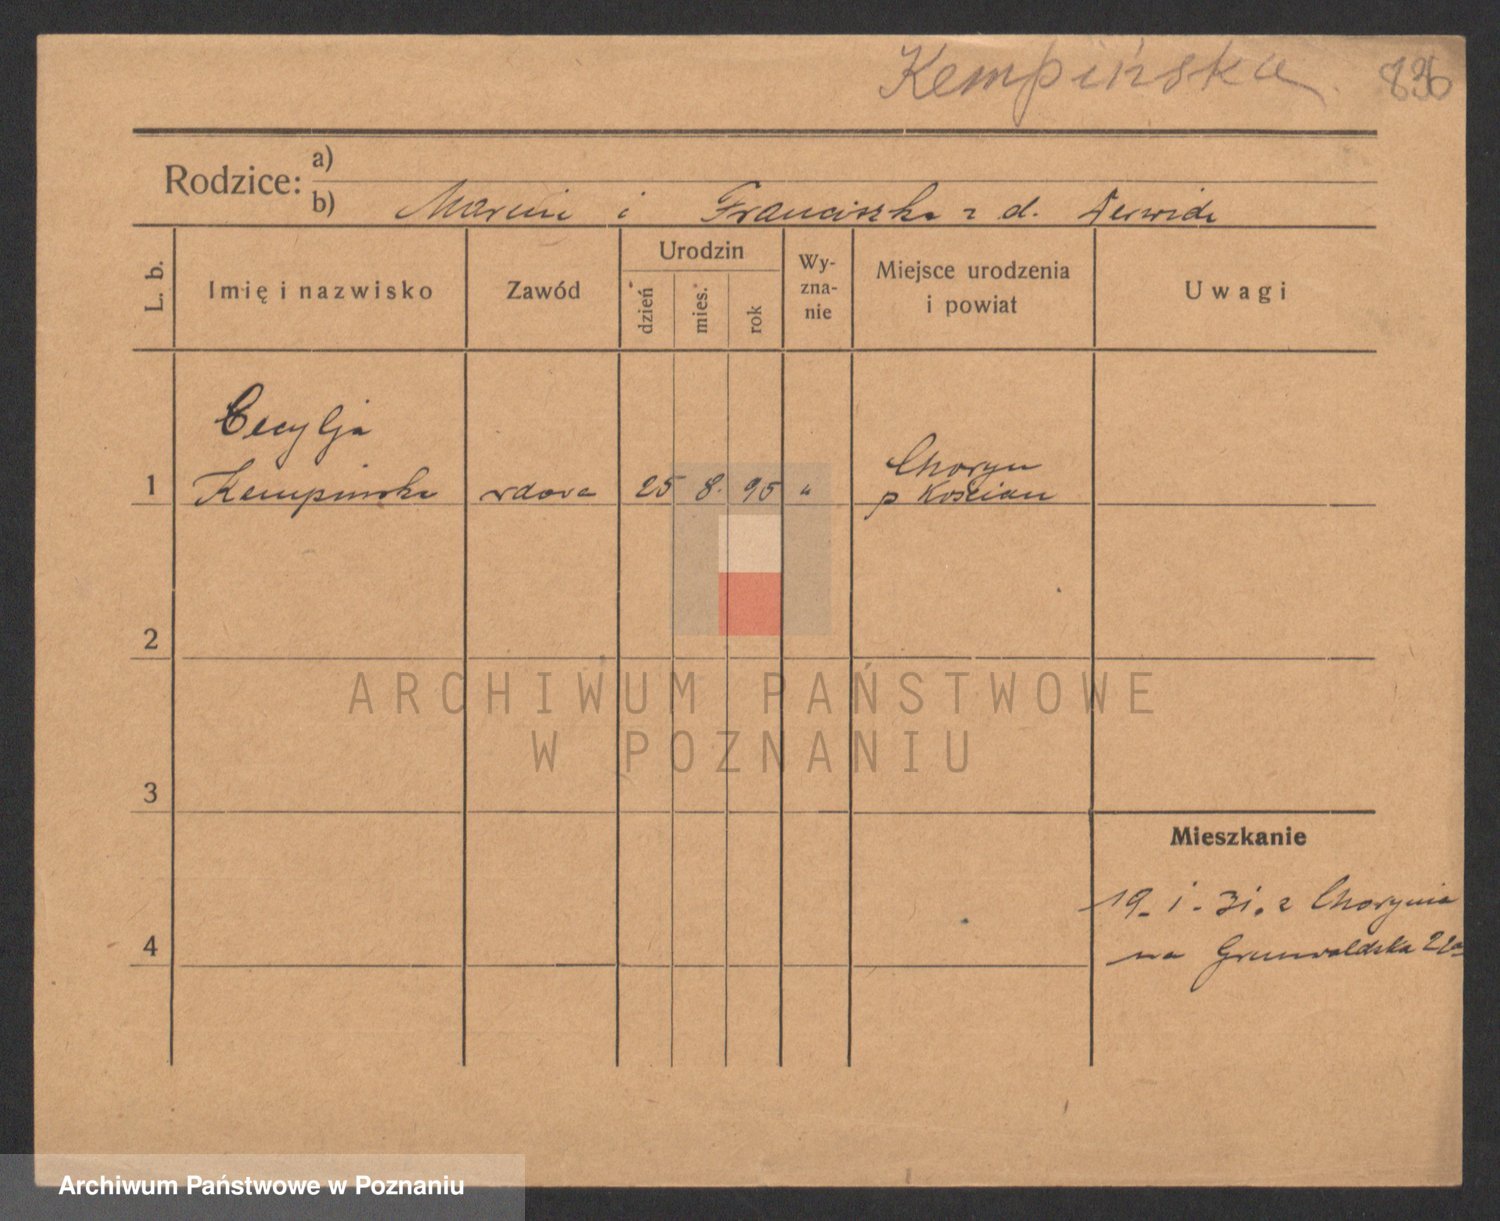 Kempińska 836
Rodzice: a)
b) Marcin i Franciszka z d.
L. b.
Imię i nazwisko
Zawód
Urodzin
dzień
mies.
rok
Wy-
zna-
nie
Miejsce urodzenia
i powiat
Uwagi
Cecylja
1 Kempinska wdowa 25 8. 95 "
Choryn
p Kościan
2
3
4
Mieszkanie
19. 1. 31. z Chorynia
na Grunwaldzka 22a
ARCHIWUM PAŃSTWOWE
W POZNANIU
Archiwum Państwowe w Poznaniu